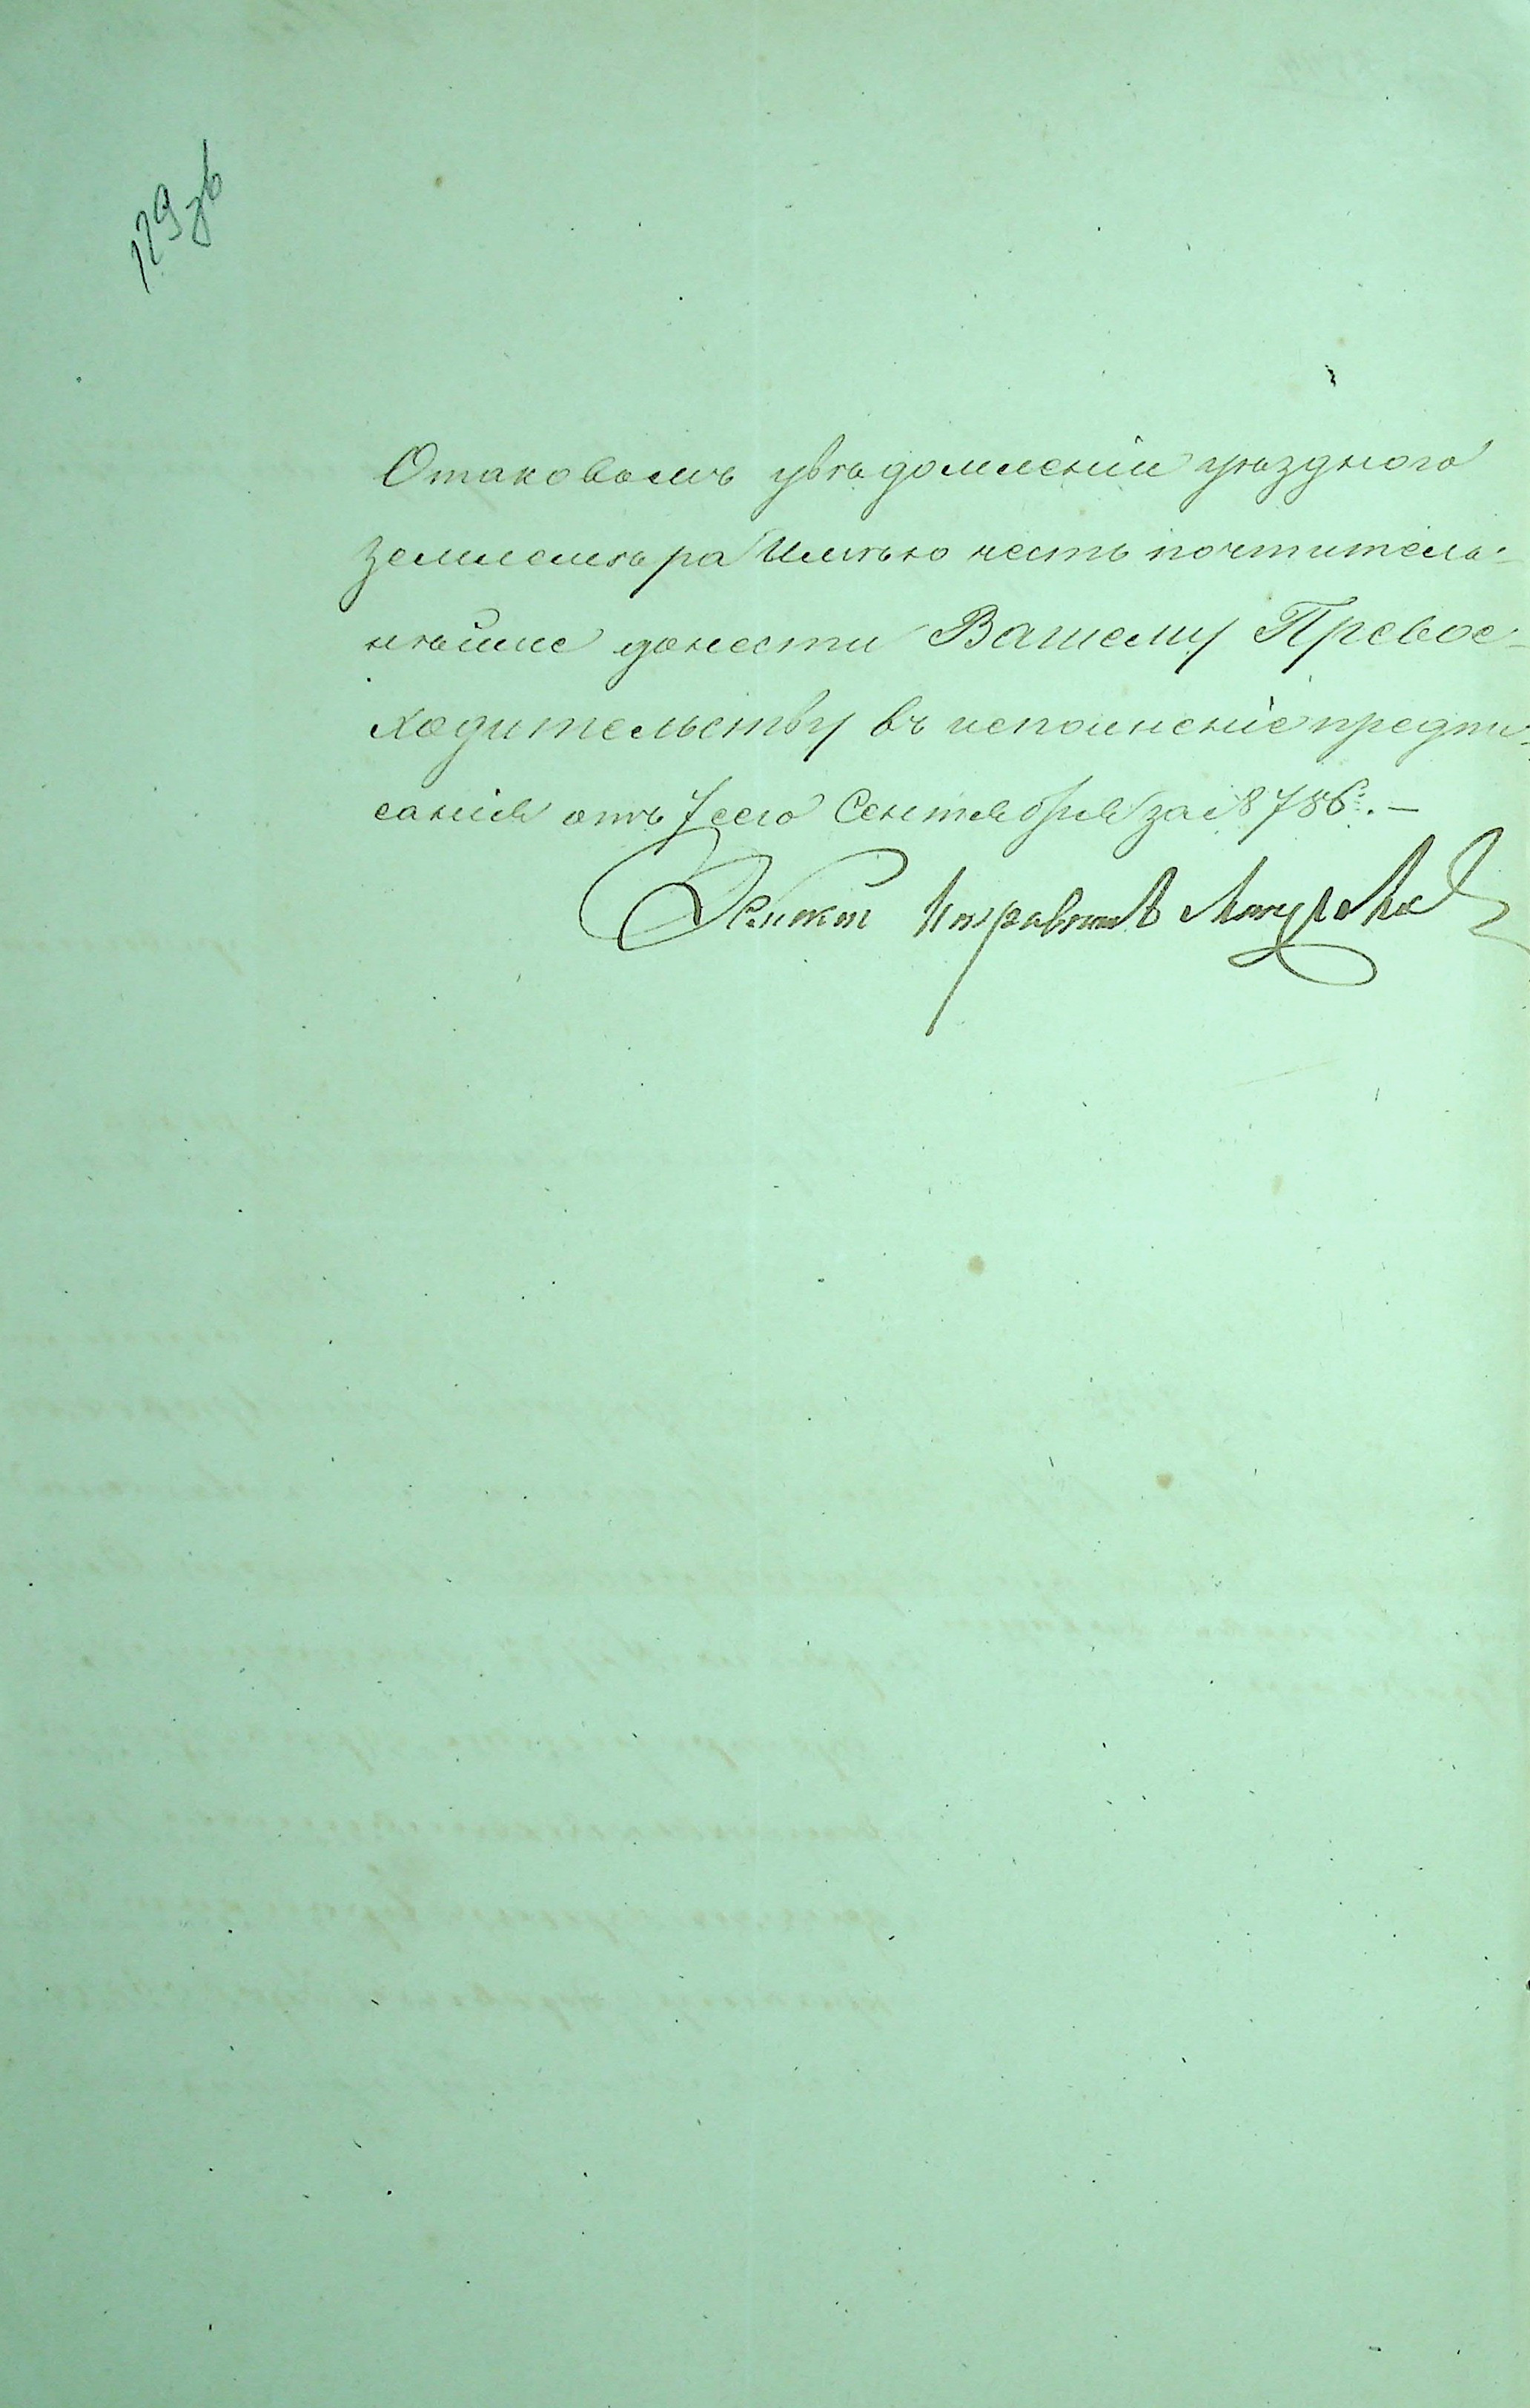 129 об
О таковомъ увѣдомленіи уѣзднаго
землемѣра Имѣю честь почтитель-
нѣйше донести Вашему Превос-
ходительству въ исполненіе предпи-
санія отъ 7 сего Сентября за № 8786. —
Земскій Исправникъ